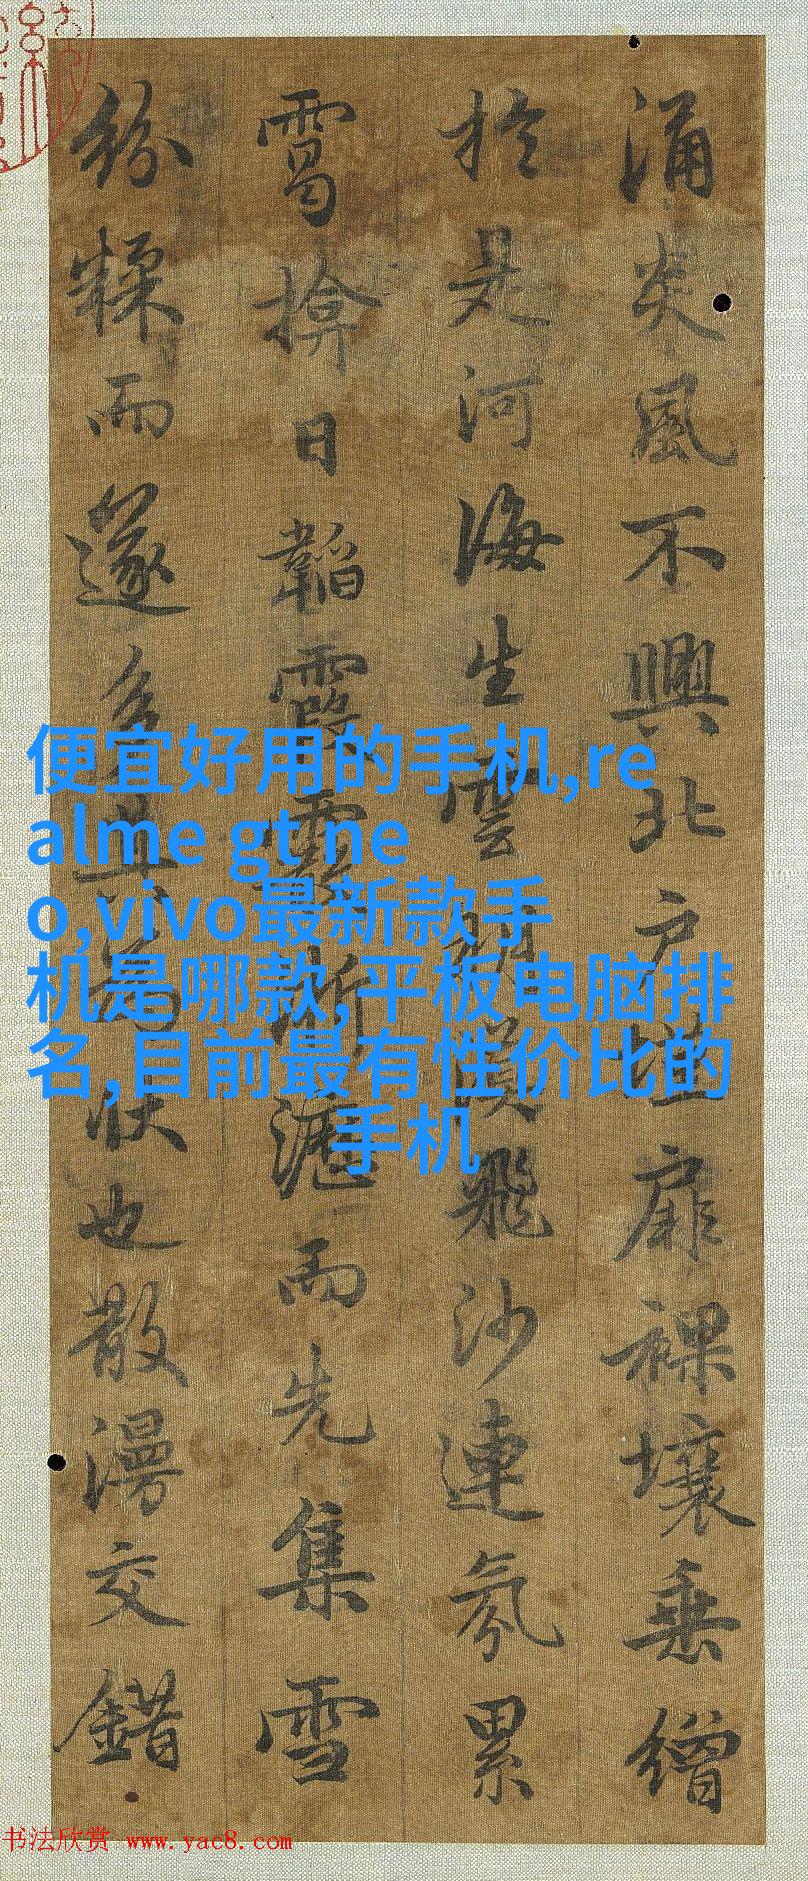 涌炎風不興北户墐扉裸壤垂繒
於是河海生雲朔漠飛沙連氛累
靄揜日韜霞霰淅瀝而先集雪
紛糅而遂多其為狀也散漫交錯
便宜好用的手机,re
alme gt ne
o,vivo最新款手
机是哪款,平板电脑排
名,目前最有性价比的
手机
书法欣赏 www.yac8.com